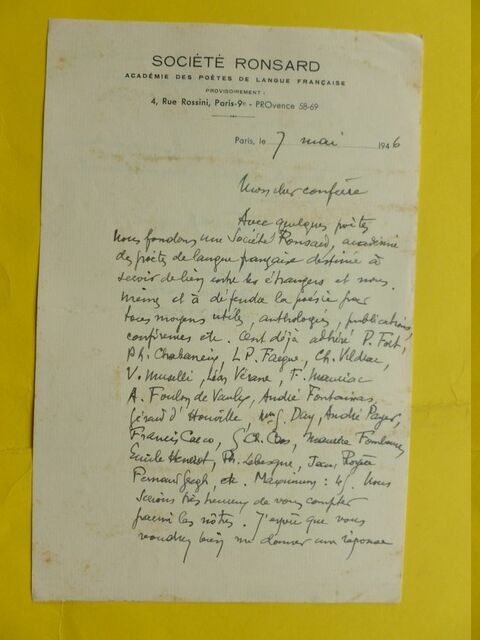 SOCIÉTÉ RONSARD
ACADÉMIE DES POÈTES DE LANGUE FRANÇAISE
PROVISOIREMENT :
4, Rue Rossini, Paris-9e - PROvence 58-69
Paris, le 7 mai 1946
Mon cher confrère
Avec quelques poètes
nous fondons une Société Ronsard, académie
des poètes de langue française destinée à
servir de lien entre les étrangers et nous-
mêmes et à défendre la poésie par
tous moyens utiles, anthologies, publications,
conférences etc. Ont déjà adhéré P. Fort,
Ph. Chabaneix, L. P. Fargue, Ch. Vildrac,
V. Muselli, Léon Vérane, F. Mauriac
A. Foulon de Vaulx, André Fontainas,
Gérard d'Houville, André Payer,
Francis Carco, Maurice Fombeure,
Emile Henriot, Ph. Lebesgue, Jean Royère
Fernand Gregh, etc. Maximum : 45. Nous
serions très heureux de vous compter
parmi les nôtres. J'espère que vous
voudrez bien me donner une réponse